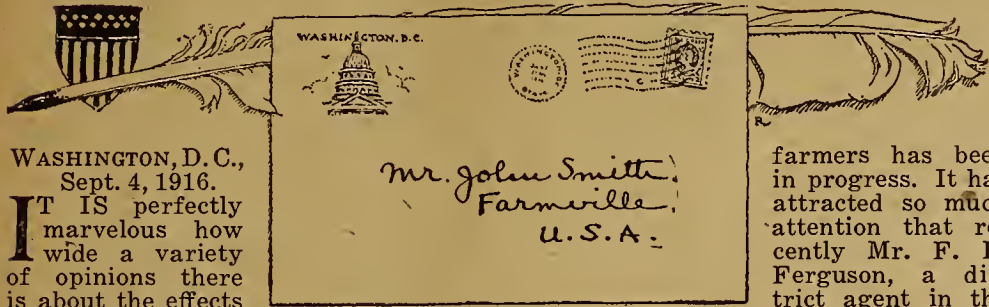 WASHINGTON, D.C.
Mr. John Smith.
Farmville.
U.S.A.
WASHINGTON, D.C.,
Sept. 4, 1916.
IT IS perfectly
marvelous how
wide a variety
of opinions there
is about the effects
farmers has bee
in progress. It ha
attracted so muc
attention that re
cently Mr. F.
Ferguson, a di
trict agent in th